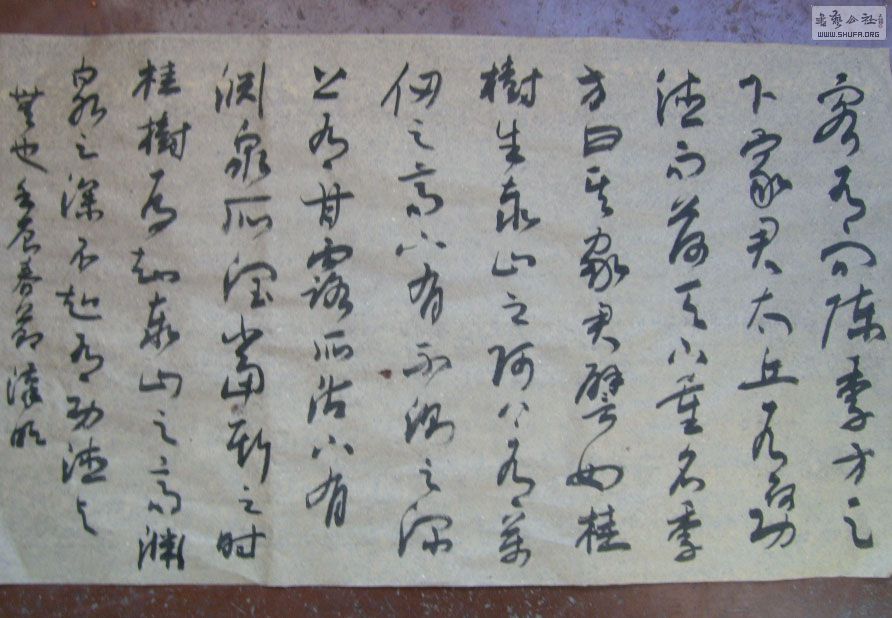 書藝公社
WWW.SHUFA.ORG
客有问陈季方足
下家君太丘有何功
德而荷天下重名季
方曰吾家君譬如桂
樹生泰山之阿上有萬
仞之高下有不测之深
上有甘露所沾下有
渊泉所润當斯之时
桂樹焉知泰山之高渊
泉之深不知有功德与
無也壬辰春节